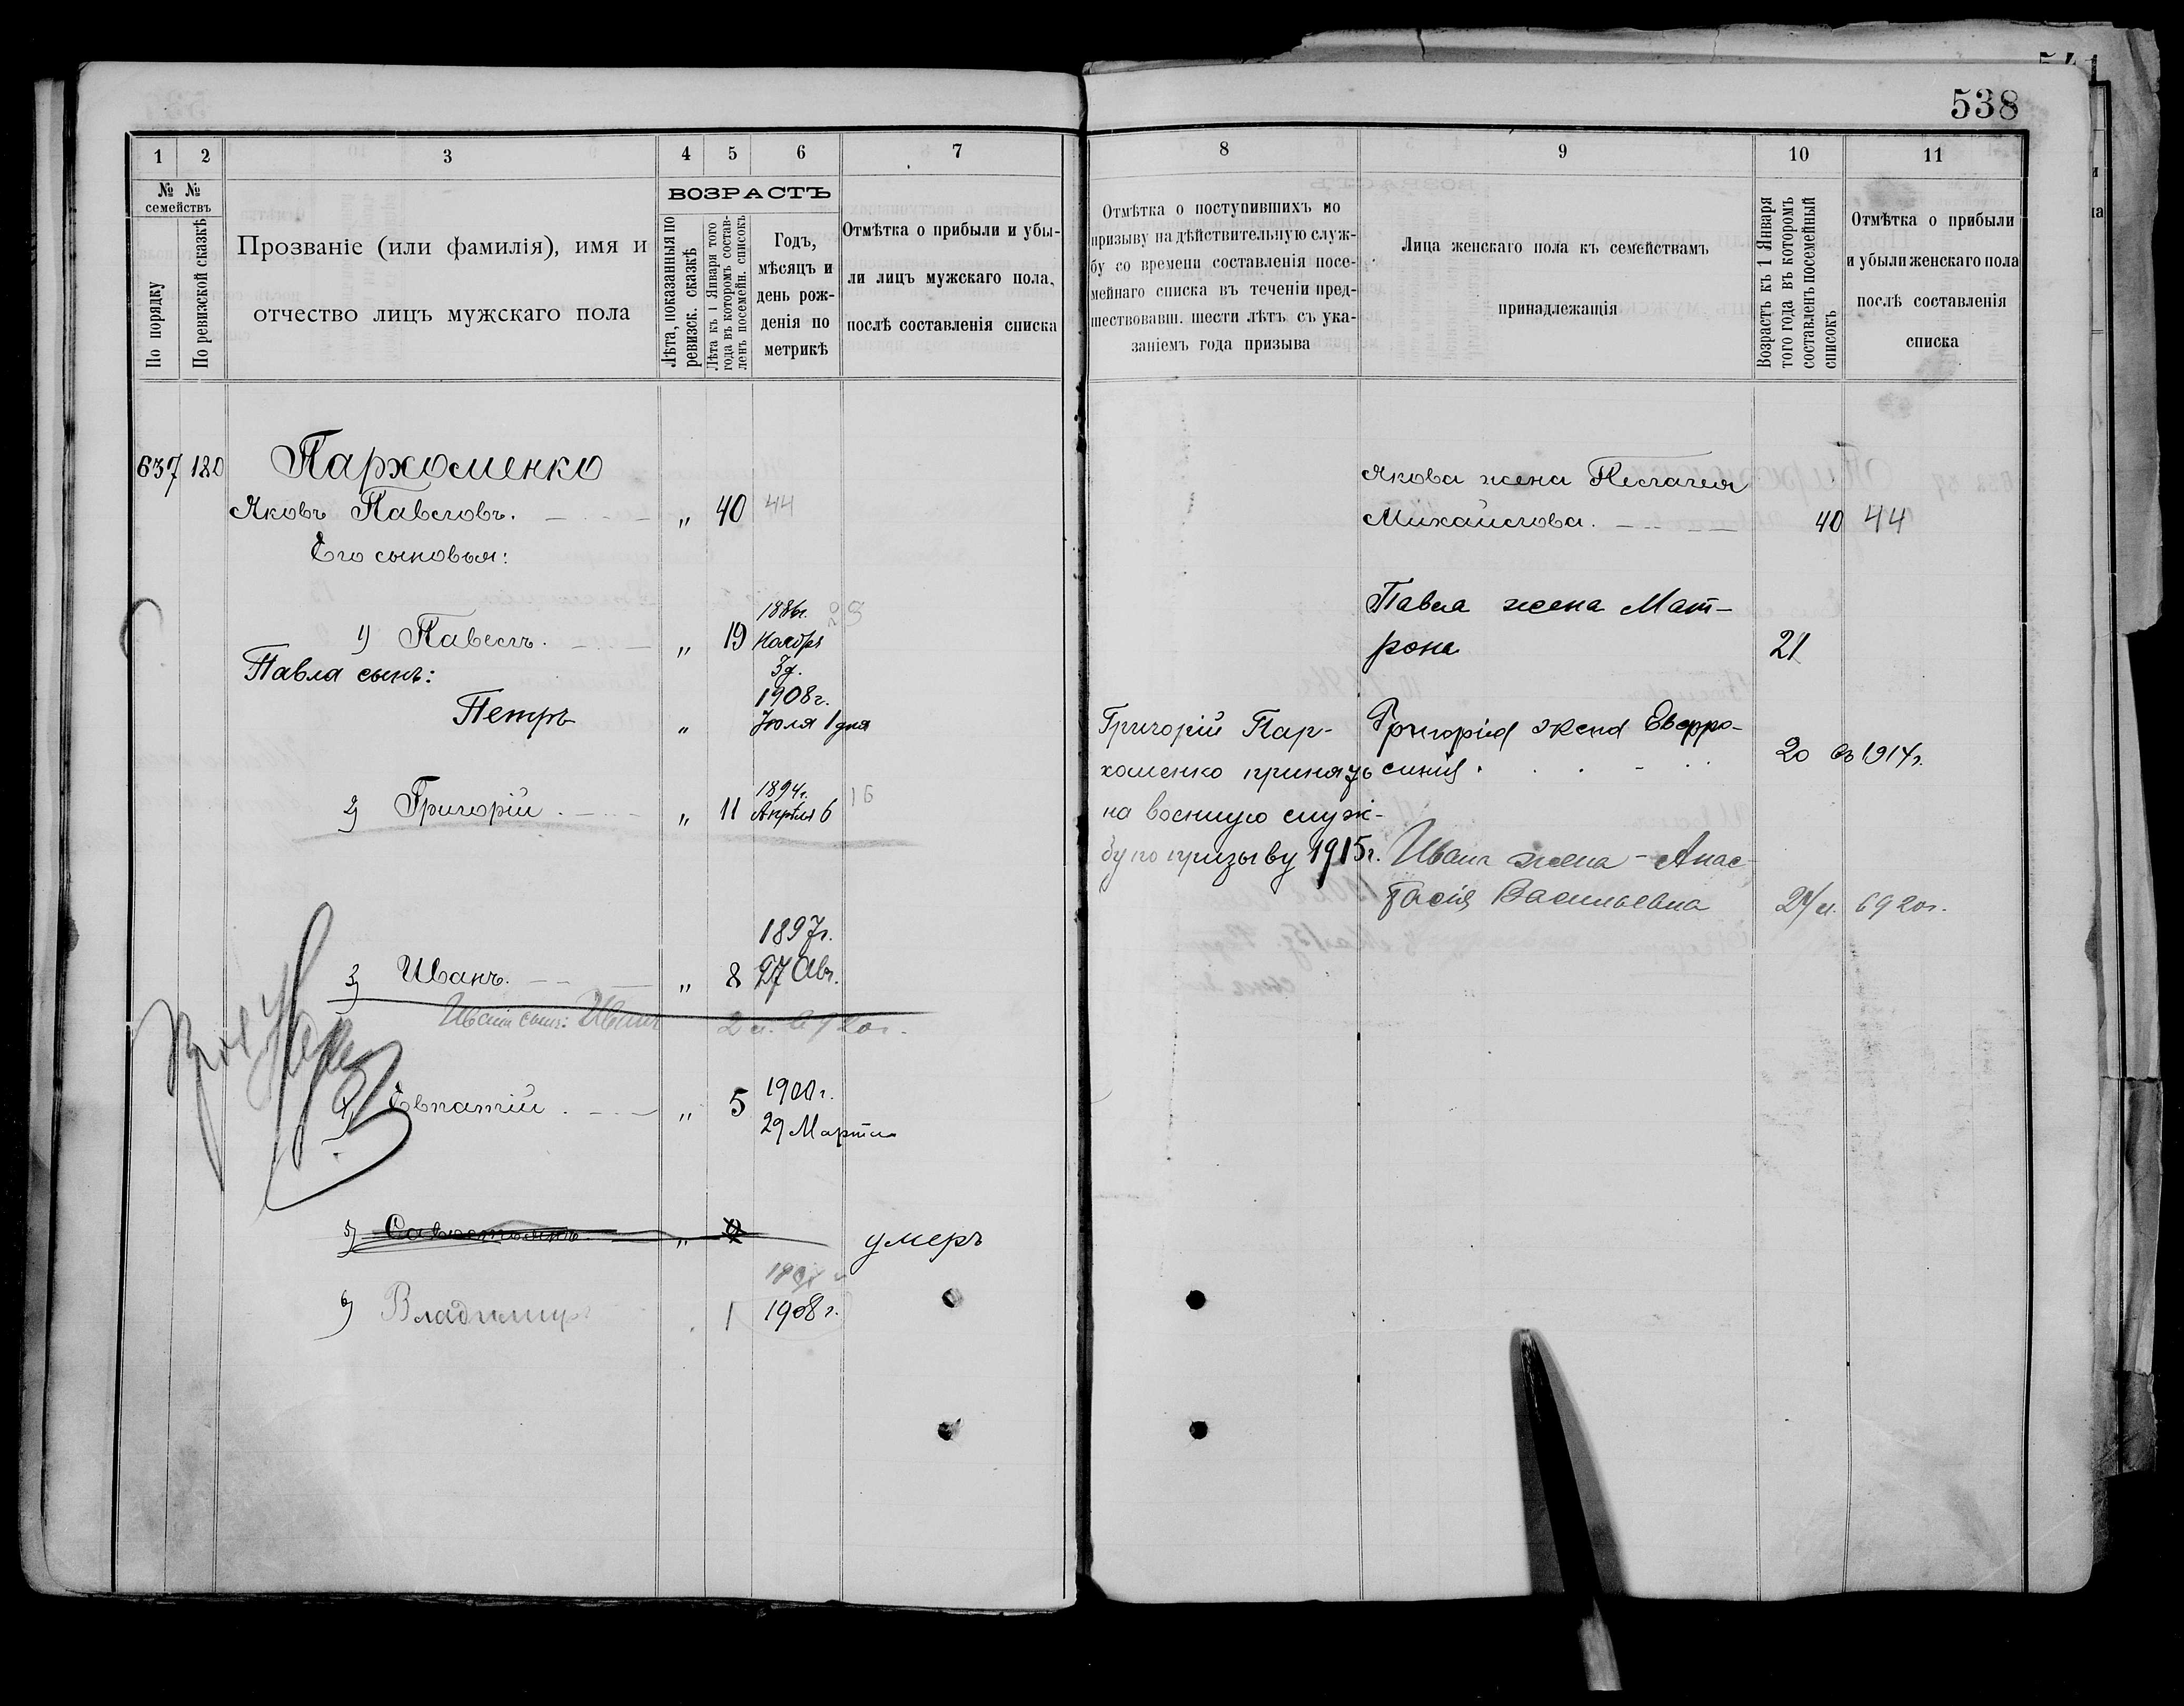 538
1
2
3
4
5
6
7
№ №
семействъ
По порядку
По ревизской сказкѣ
Прозваніе (или фамилія), имя и
отчество лицъ мужскаго пола
ВОЗРАСТЪ
Лѣта, показанныя по
ревизск. сказкѣ
Лѣта къ 1 Января того
года въ которомъ состав-
ленъ посемейн. списокъ
Годъ,
мѣсяцъ и
день рож-
денія по
метрикѣ
Отмѣтка о прибыли и убы-
ли лицъ мужскаго пола,
послѣ составленія списка
637 180 Пархоменко
Яковъ Павловъ. „ 40 44
Его сыновья:
1886г. 23
1) Павелъ. „ 19 Ноября
3 д.
Павла сынъ:
1908г.
Петръ „ Іюля 1 дня
1894г. 16
2) Григорій. „ 11 Апрѣля 6
1897г.
3) Иванъ. „ 8 27 Авг.
Ивана сынъ: Иванъ 2 л. в 920г.
Евпатій. „ 5 1900г.
29 Марта
5) „ умеръ
6) Владимиръ 1 1908г.
8
9
10
11
Отмѣтка о поступившихъ по
призыву на дѣйствительную служ-
бу со времени составленія посе-
мейнаго списка въ теченіи пред-
шествовавш. шести лѣтъ съ ука-
заніемъ года призыва
Лица женскаго пола къ семействамъ
принадлежащія
Возрастъ къ 1 Января
того года въ которомъ
составленъ посемейный
списокъ
Отмѣтка о прибыли
и убыли женскаго пола
послѣ составленія
списка
Якова жена Пелагея
Михайлова. 40 44
Павла жена Мат-
рона 21
Григорій Пар-
хоменко принятъ
на военную служ-
бу по призыву 1915г.
Григорія жена Евфро-
синія. 20 въ 1914г.
Ивана жена - Анас-
тасія Васильевна 24 л. в 920г.